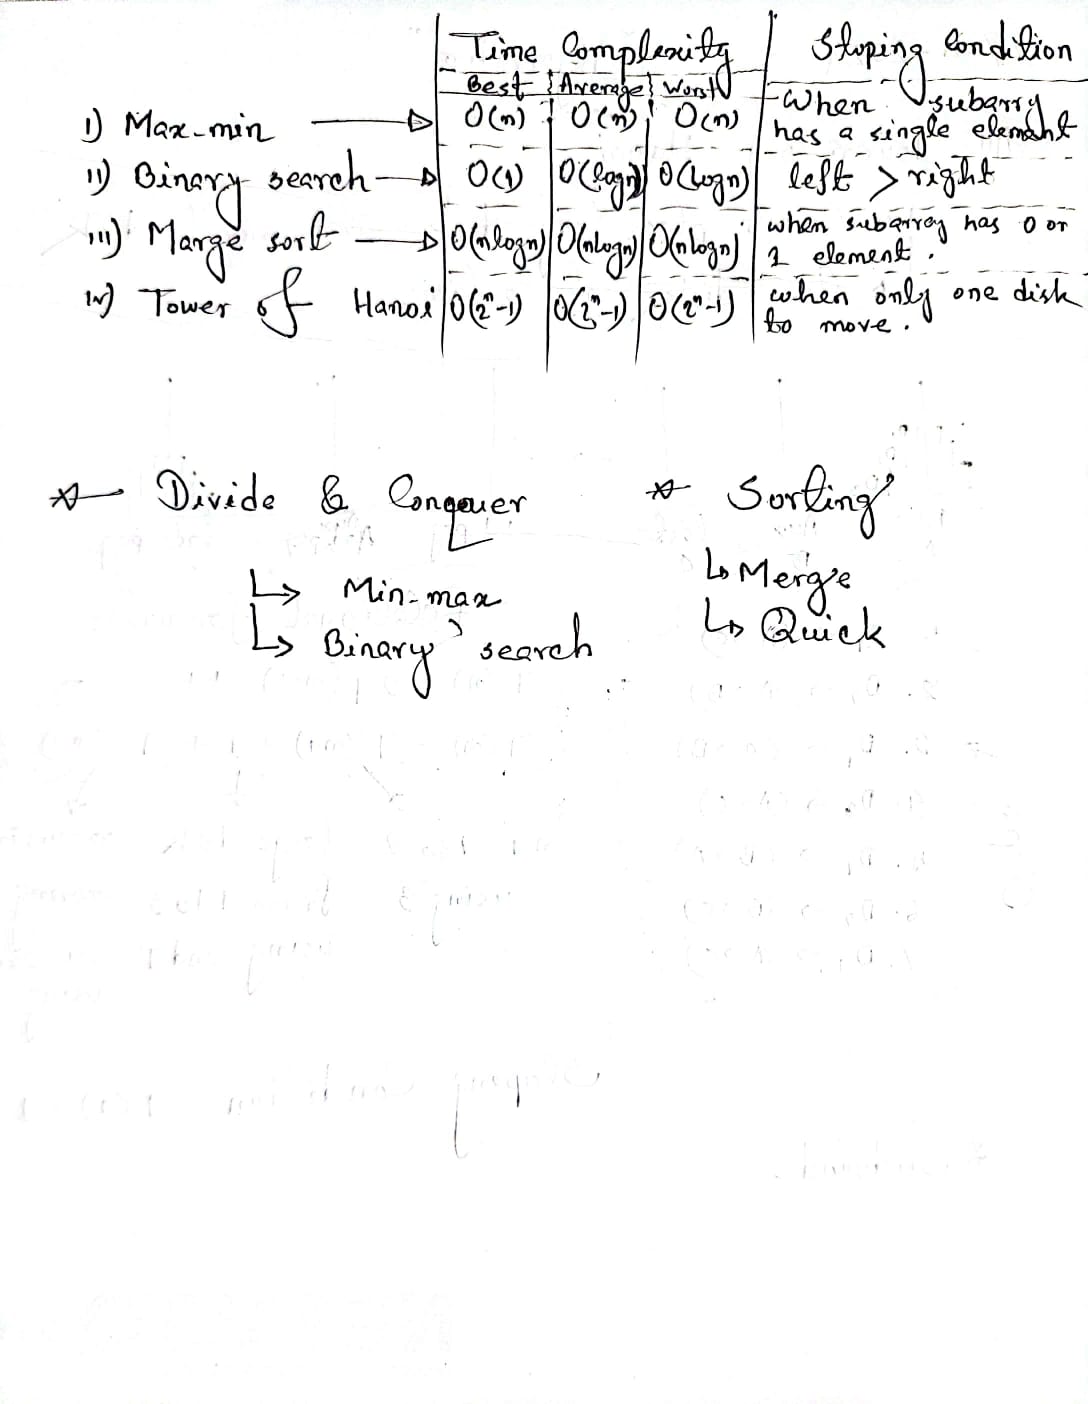 Time Complexity | Stoping Condition
Best | Average | Worst
i) Max-min → O(n) | O(n) | O(n) | When subarry has a single element
ii) Binary search → O(1) | O(logn) | O(logn) | left > right
iii) Marge sort → O(nlogn) | O(nlogn) | O(nlogn) | when subarray has 0 or 1 element.
iv) Tower of Hanoi O(2ⁿ-1) | O(2ⁿ-1) | O(2ⁿ-1) | when only one disk to move.
☆ Divide & Conquer
↳ Min-max
↳ Binary search
☆ Sorting
↳ Merge
↳ Quick